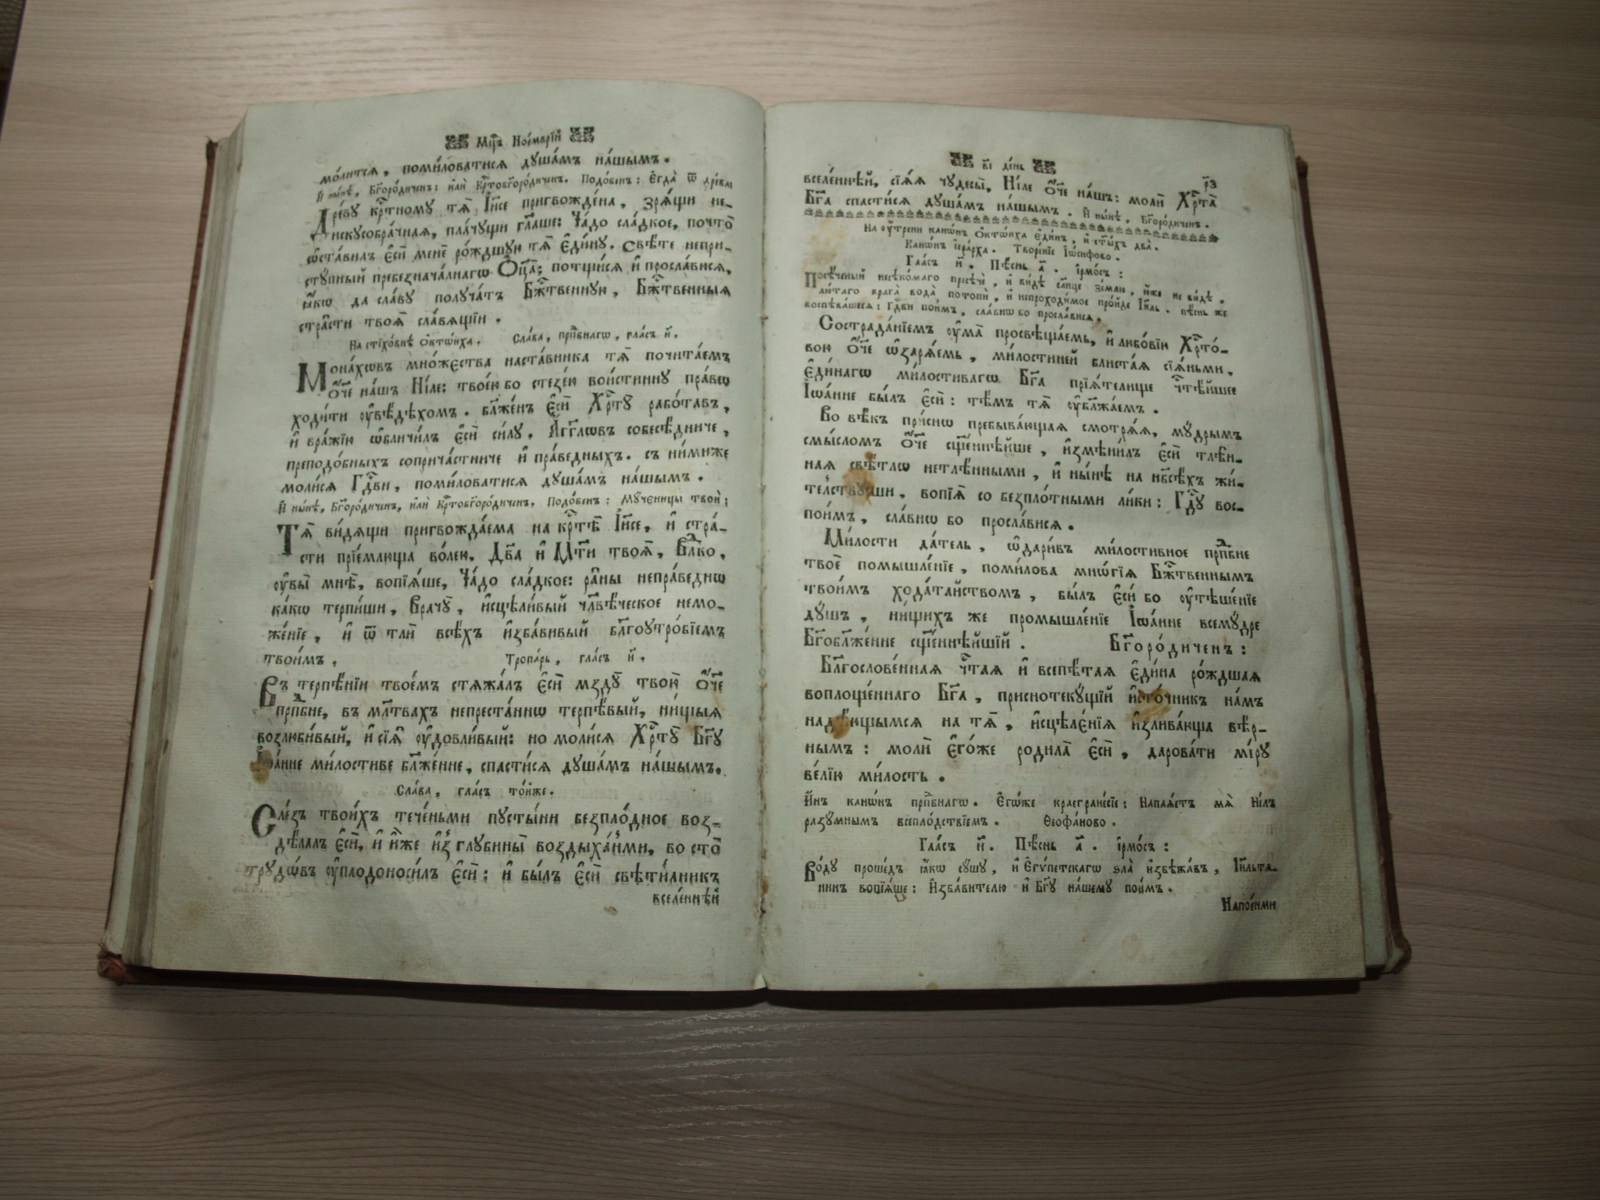 Мц҃ъ Ноемврїй
мо́лится, поми́ловатися дꙋша́мъ на́шымъ.
И҆ ны́нѣ, Бг҃оро́диченъ: и҆лѝ Крⷭ҇тобг҃оро́диченъ. Подо́бенъ: Є҆гда̀ ѿ дре́ва
Дре́вꙋ крⷭ҇тномꙋ тѧ̀ І҆и҃се пригвожде́на, зрѧ́щи не-
искꙋсобра́чная, пла́чꙋщи глаше: Ча́до сла́дкое, почто̀
ѡ҆ста́вилъ є҆сѝ менѐ ро́ждшꙋю тѧ̀ є҆ди́нꙋ. свѣ́те непри-
стꙋ́пный пребезнача́лнагѡ Ѻ҆ц҃а̀; потщи́ся и҆ просла́вися,
ꙗ҆́кѡ да сла́вꙋ полꙋча́тъ Бж҃твеннꙋю, Бж҃твенныя
стра́сти твоѧ̑ сла́вящїи.
На стїхо́внѣ ѻ҆ктѡ́иха. Сла́ва, прпⷣбнагѡ, гла́съ и҃.
Мона́хѡвъ мно́жества наста́вника тѧ̀ почита́емъ
ѻ҆́ч҃е на́шъ Ні́ле: твое́ю бо стезе́ю вои́стиннꙋ пра́вѡ
ходи́ти ᲂу҆вѣ́дѣхомъ. бл҃же́нъ є҆сѝ Хрⷭ҇тꙋ̀ рабо́тавъ,
и҆ вра́жїю ѡ҆бличи́лъ є҆сѝ си́лꙋ, А҆́гг҃лѡвъ собесѣ́дниче,
преподо́бныхъ соприча́стниче и҆ пра́ведныхъ. съ ни́миже
моли́ся Гдⷭ҇ви, поми́ловатися дꙋша́мъ на́шымъ.
И҆ ны́нѣ, Бг҃оро́диченъ, и҆лѝ Крⷭ҇тобг҃оро́диченъ. Подо́бенъ: Мꙋ́ченицы твоѝ:
Тѧ̀ ви́дящи пригвожда́ема на крⷭ҇тѣ̀ І҆и҃се, и҆ стра́-
сти прїе́млюща во́лею, Дв҃а и҆ Мт҃и твоѧ̀, Вл҃ко,
ᲂу҆вы̀ мнѣ̀, вопїѧ́ше, Ча́до сла́дкое: ра́ны непра́веднѡ
ка́кѡ терпи́ши, Врачꙋ̀, и҆сцѣли́вый чл҃вѣ́ческое немо-
же́нїе, и҆ ѿ тлѝ всѣ́хъ и҆зба́вивый бл҃гоꙋтро́бїемъ
твои́мъ. Тропа́рь, гла́съ и҃.
Въ терпѣ́нїи твое́мъ стяжа́лъ є҆сѝ мздꙋ̀ твою̀ ѻ҆́ч҃е
прпⷣбне, въ мл҃твахъ непреста́ннѡ терпѣ́вый, ни́щыя
возлюби́вый, и҆ сїѧ̑ ᲂу҆довли́вый: но моли́ся Хрⷭ҇тꙋ̀ Бг҃ꙋ
І҆ѡа́нне ми́лостиве бл҃же́нне, спасти́ся дꙋша́мъ на́шымъ.
Сла́ва, гла́съ то́йже.
Сле́зъ твои́хъ тече́ньми пꙋсты́ни безпло́дное воз-
дѣ́лалъ є҆сѝ, и҆ и҆́же и҆з̾ глꙋбины̀ воздыха́ньми, во сто̀
трꙋдѡ́въ ᲂу҆плодоноси́лъ є҆сѝ: и҆ бы́лъ є҆сѝ свѣти́лникъ
вселе́ннѣй
в҃і де́нь
р҃з
вселе́ннѣй, сїѧ́я чꙋдесы̀, Ні́ле ѻ҆́ч҃е на́шъ: молѝ Хрⷭ҇та̀
Бг҃а спасти́ся дꙋша́мъ на́шымъ. И҆ ны́нѣ, Бг҃оро́диченъ.
На ᲂу҆́трени канѡ́нъ ѻ҆ктѡ́иха є҆ди́нъ, и҆ ст҃ы́хъ два̀.
Канѡ́нъ і҆ера́рха. Творе́нїе І҆ѡ́сифово.
Гла́съ и҃. Пѣ́снь а҃. і҆рмо́съ:
Посѣче́ный несѣко́маго пресѣчѐ, и҆ ви́дѣ со́лнце зе́млю, ю҆́же не ви́дѣ.
лю́таго врага̀ вода̀ потопѝ, и҆ непроходи́мое про́йде І҆и҃ль. пѣ́снь же
воспѣва́шеся: Гдⷭ҇ви пои́мъ, сла́внѡ бо просла́вися.
Сострада́нїемъ ᲂу҆́ма̀ просвѣща́емь, и҆ любо́вїю Хрⷭ҇то́-
вою ѻ҆́ч҃е ѡ҆заря́емь, ми́лостинею блиста́я сїѧ́ньми,
є҆ди́нагѡ ми́лостивагѡ Бг҃а прїѧ́телище чⷭ҇тѣ́йшее
І҆ѡа́нне бы́лъ є҆сѝ: тѣ́мъ тѧ̀ ᲂу҆бл҃жа́емъ.
Во вѣ́къ при́снѡ пребыва́ющая смотрѧ́я, мꙋ́дрымъ
смы́сломъ ѻ҆́ч҃е сщ҃е́ннѣйше, и҆змѣни́лъ є҆сѝ тлѣ́н-
ная свѣ́тлѡ нетлѣ́нными, и҆ ны́нѣ на нб҃сѣ́хъ жи́-
те́лствꙋеши, вопїѧ̀ со безпло́тными ли́ки: Гдⷭ҇ꙋ вос-
пои́мъ, сла́внѡ бо просла́вися.
Ми́лости да́тель, ѡ҆дари́въ ми́лостивное прпⷣбне
твоѐ помышле́нїе, поми́лова мнѡ́гїя Бж҃твеннымъ
твои́мъ хода́тайствомъ, бы́лъ є҆сѝ бо ᲂу҆тѣше́нїе
дꙋ́шъ, ни́щихъ же промышле́нїе І҆ѡа́нне всемꙋ́дре
Бг҃обл҃же́нне сщ҃е́ннѣйшїй. Бг҃оро́диченъ:
Бл҃гослове́нная чⷭ҇тая и҆ всепѣ́тая є҆ди́на ро́ждшая
воплоще́ннаго Бг҃а, приснотекꙋ́щїй и҆сто́чникъ на́мъ
надѣ́ющымся на тѧ̀, и҆сцѣле́нїя и҆злива́юща вѣ́р-
нымъ: молѝ є҆го́же родила̀ є҆сѝ, дарова́ти мі́рꙋ
ве́лїю ми́лость.
И҆́нъ канѡ́нъ прпⷣбнагѡ. Є҆гѡ́же краегране́сїе: Напаѧ́етъ мѧ̀ Ні́лъ
разꙋ́мнымъ всепло́дствїемъ. Ѳеофа́ново.
Гла́съ и҃. Пѣ́снь а҃. і҆рмо́съ:
Во́дꙋ проше́дъ ꙗ҆́кѡ сꙋ́шꙋ, и҆ є҆гѵ́петскагѡ ѕла̀ и҆збѣжа́въ, І҆и҃лтѧ-
нинъ вопїѧ́ше: И҆зба́вителю и҆ Бг҃ꙋ на́шемꙋ пои́мъ.
Напое́ними